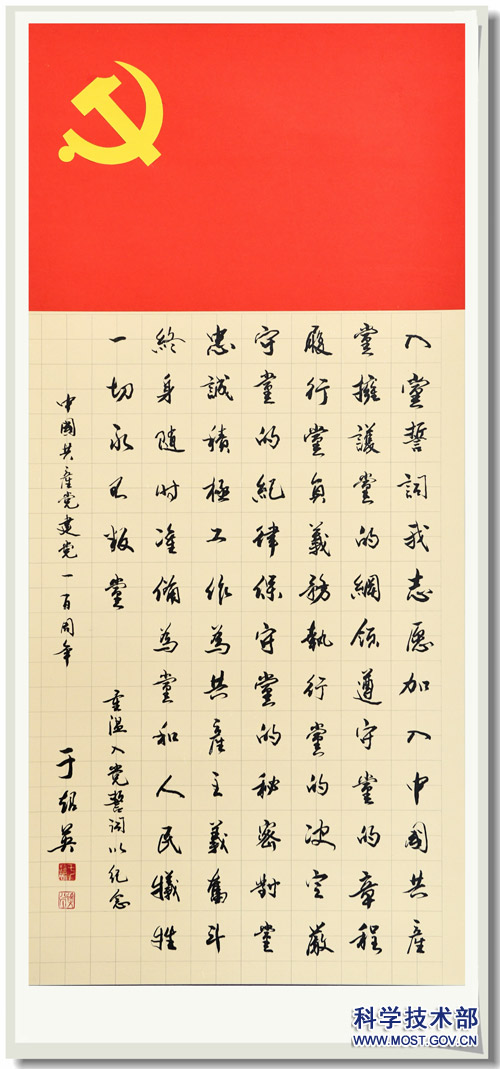 入黨誓詞我志愿加入中國共産
黨擁護黨的綱領遵守黨的章程
履行黨員義務執行黨的决定嚴
守黨的紀律保守黨的秘密對黨
忠誠積極工作為共産主義奮斗
終身随时准備為黨和人民犧牲
一切永不叛黨
重温入党誓詞以纪念
中國共産党建党一百周年
科学技术部
WWW.MOST.GOV.CN